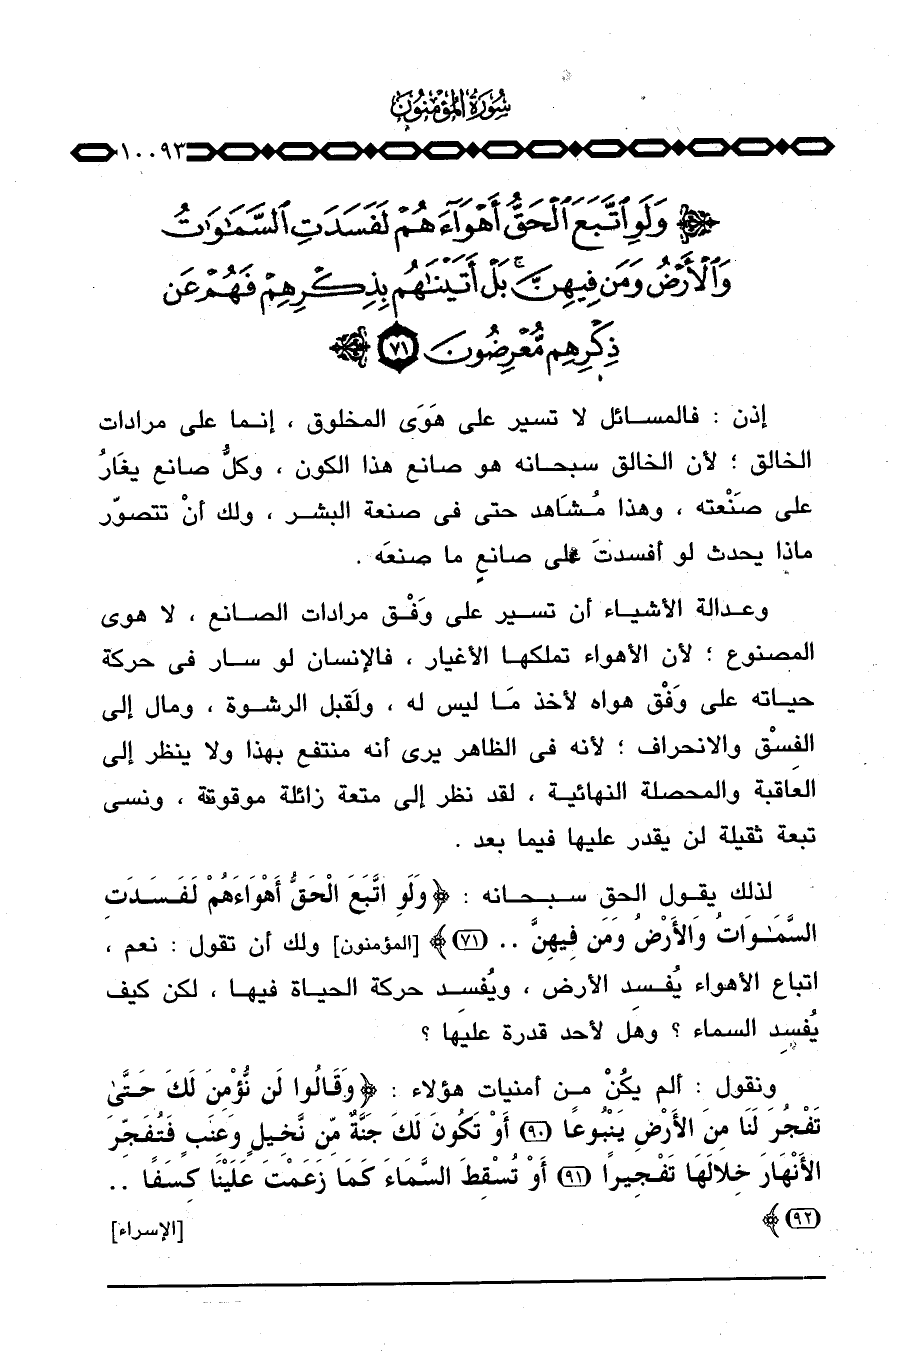 سُورَةُ المُؤْمِنُونَ
١٠٠٩٣
﴿ وَلَوِ ٱتَّبَعَ ٱلْحَقُّ أَهْوَآءَهُمْ لَفَسَدَتِ ٱلسَّمَٰوَٰتُ
وَٱلْأَرْضُ وَمَن فِيهِنَّ ۚ بَلْ أَتَيْنَٰهُم بِذِكْرِهِمْ فَهُمْ عَن
ذِكْرِهِم مُّعْرِضُونَ ٧١ ﴾
إذن : فالمسائل لا تسير على هَوَى المخلوق ، إنما على مرادات
الخالق ؛ لأن الخالق سبحانه هو صانع هذا الكون ، وكلُّ صانع يغَارُ
على صَنْعته ، وهذا مُشَاهد حتى فى صنعة البشر ، ولك أنْ تتصوَّر
ماذا يحدث لو أفسدتَ على صانعٍ ما صنعَه .
وعدالة الأشياء أن تسير على وَفْق مرادات الصانع ، لا هوى
المصنوع ؛ لأن الأهواء تملكها الأغيار ، فالإنسان لو سار فى حركة
حياته على وَفْق هواه لأخذ مَا ليس له ، ولَقبل الرشوة ، ومال إلى
الفسْق والانحراف ؛ لأنه فى الظاهر يرى أنه منتفع بهذا ولا ينظر إلى
العاقبة والمحصلة النهائية ، لقد نظر إلى متعة زائلة موقوتة ، ونسى
تبعة ثقيلة لن يقدر عليها فيما بعد .
لذلك يقول الحق سبحانه : ﴿ وَلَوِ اتَّبَعَ الْحَقُّ أَهْوَاءَهُمْ لَفَسَدَتِ
السَّمَٰوَاتُ وَالأَرْضُ وَمَن فِيهِنَّ .. (٧١) ﴾ [المؤمنون] ولك أن تقول : نعم ،
اتباع الأهواء يُفسد الأرض ، ويُفسد حركة الحياة فيها ، لكن كيف
يُفسِد السماء ؟ وهل لأحد قدرة عليها ؟
ونقول : ألم يكُنْ من أمنيات هؤلاء : ﴿ وَقَالُوا لَن نُّؤْمِنَ لَكَ حَتَّىٰ
تَفْجُرَ لَنَا مِنَ الأَرْضِ يَنْبُوعًا (٩٠) أَوْ تَكُونَ لَكَ جَنَّةٌ مِّن نَّخِيلٍ وَعِنَبٍ فَتُفَجِّرَ
الأَنْهَارَ خِلالَهَا تَفْجِيرًا (٩١) أَوْ تُسْقِطَ السَّمَاءَ كَمَا زَعَمْتَ عَلَيْنَا كِسَفًا ..
(٩٢) ﴾ [الإسراء]